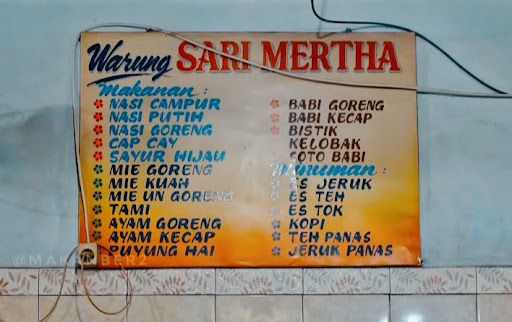 Warung SARI MERTHA
Makanan :
NASI CAMPUR
NASI PUTIH
NASI GORENG
CAP CAY
SAYUR HIJAU
MIE GORENG
MIE KUAH
MIE UN GORENG
TAMI
AYAM GORENG
AYAM KECAP
PUYUNG HAI
BABI GORENG
BABI KECAP
BISTIK
KELOBAK
SOTO BABI
Minuman :
ES JERUK
ES TEH
ES TOK
KOPI
TEH PANAS
JERUK PANAS